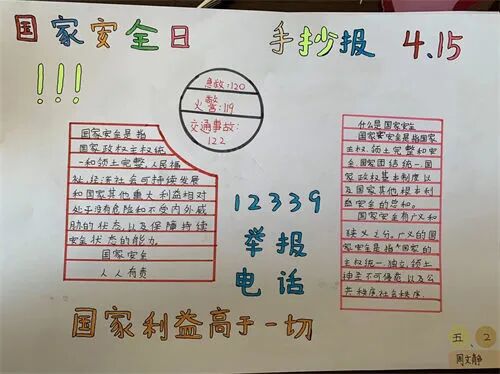 国家安全日 手抄报 4.15
!!!
急救:120
火警:119
交通事故:
122
国家安全是指
国家政权主权统
一和领土完整、人民福
祉、经济社会可持续发展
和国家其他重大利益相对
处于没有危险和不受内外威
胁的状态,以及保障持续
安全状态的能力。
国家安全
人人有责
12339
举报
电话
什么是国家安全
国家安全是指国家
主权、领土完整和安
全、国家团结统一、国
家政权基本制度以
及国家其他根本利
益安全的总和。
国家安全有广义和
狭义之分。广义的国
家安全是指"国家的
主权统一、独立、领土
神圣不可侵范,以及公
共秩序、社会秩序.
国家利益高于一切
五、2
周文静